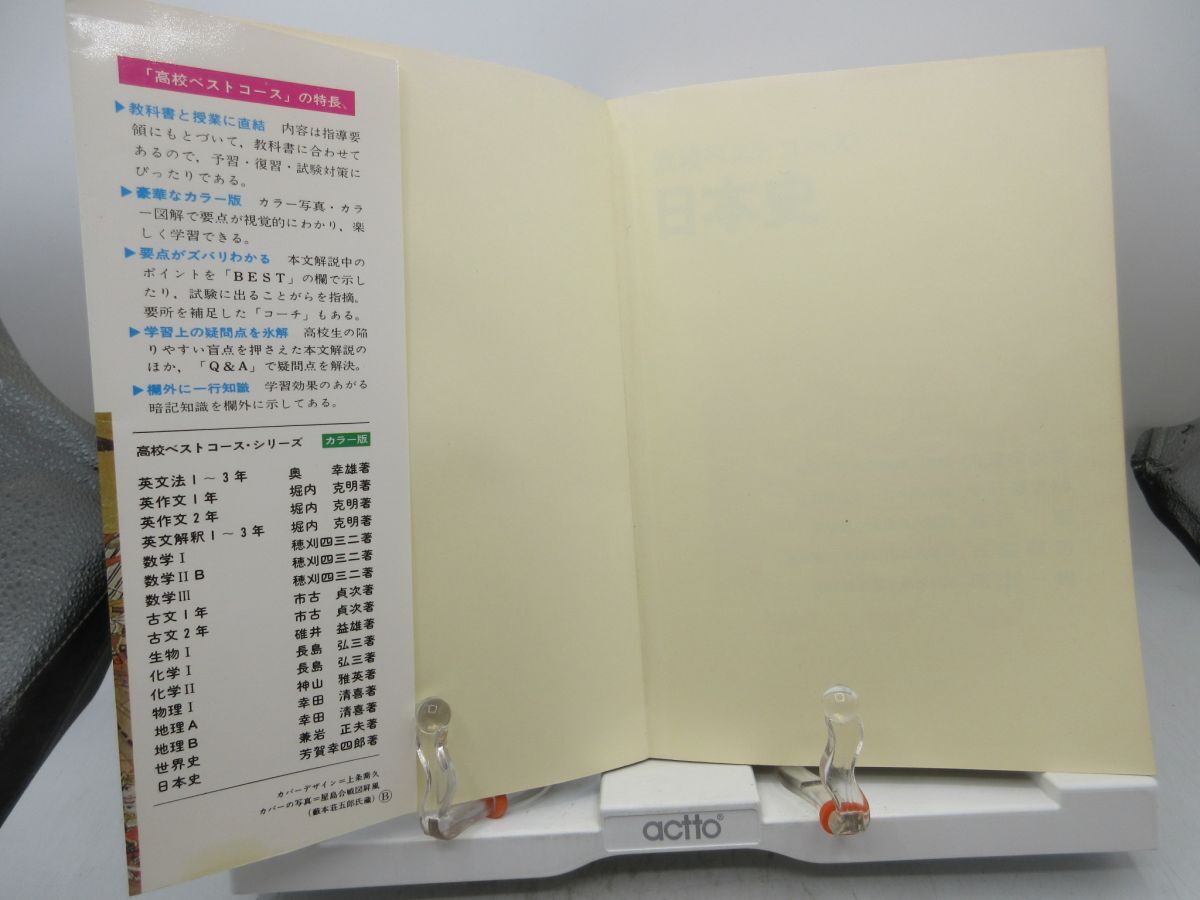 「高校ベストコース」の特長、
▶教科書と授業に直結 内容は指導要
領にもとづいて，教科書に合わせて
あるので，予習・復習・試験対策に
ぴったりである。
▶豪華なカラー版 カラー写真・カラ
ー図解で要点が視覚的にわかり、楽
しく学習できる。
▶要点がズバリわかる 本文解説中の
ポイントを「BEST」の欄で示し
たり，試験に出ることがらを指摘。
要所を補足した「コーチ」もある。
▶学習上の疑問点を氷解 高校生の陥
りやすい盲点を押さえた本文解説の
ほか，「Q&A」で疑問点を解決。
▶欄外に一行知識 学習効果のあがる
暗記知識を欄外に示してある。
高校ベストコース・シリーズ カラー版
英文法1～3年 奥 幸雄著
英作文1年 堀内 克明著
英作文2年 堀内 克明著
英文解釈1～3年 堀内 克明著
数学Ⅰ 穂刈四三二著
数学ⅡB 穂刈四三二著
数学Ⅲ 穂刈四三二著
古文1年 市古 貞次著
古文2年 市古 貞次著
生物Ⅰ 碓井 益雄著
化学Ⅰ 長島 弘三著
化学Ⅱ 長島 弘三著
物理Ⅰ 神山 雅英著
地理A 幸田 清喜著
地理B 幸田 清喜著
世界史 兼岩 正夫著
日本史 芳賀幸四郎著
カバーデザイン＝上条喬久
カバーの写真＝屋島合戦図屏風
（藪本荘五郎氏蔵） Ⓑ
actto